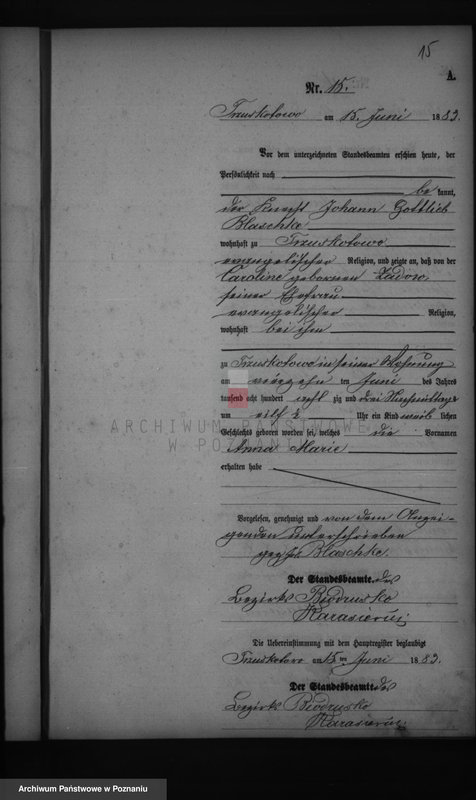 15
A.
Nr. 15.
Trzuskotowo am 15. Juni 1883.
Vor dem unterzeichneten Standesbeamten erschien heute, der
Persönlichkeit nach
bekannt,
der Knecht Johann Gottlieb
Blaschke
wohnhaft zu Trzuskotowo
evangelischer Religion, und zeigte an, daß von der
Caroline geborenen
seiner Ehefrau
evangelischer Religion,
wohnhaft bei ihm
zu Trzuskotowo in seiner Wohnung
am vierzehn ten Juni des Jahres
tausend acht hundert acht zig und drei Nachmittags
um eilf ½ Uhr ein Kind weib lichen
Geschlechts geboren worden sei, welches die Vornamen
Anna Marie
erhalten habe
Vorgelesen, genehmigt und von dem Anzei-
genden unterschrieben
Blaschke.
Der Standesbeamte des
Bezirks Biedrusko
Die Uebereinstimmung mit dem Hauptregister beglaubigt
Trzuskotowo am 15ten Juni 1883.
Der Standesbeamte des
Bezirks Biedrusko
ARCHIWUM PAŃSTWOWE
W POZNANIU
Archiwum Państwowe w Poznaniu